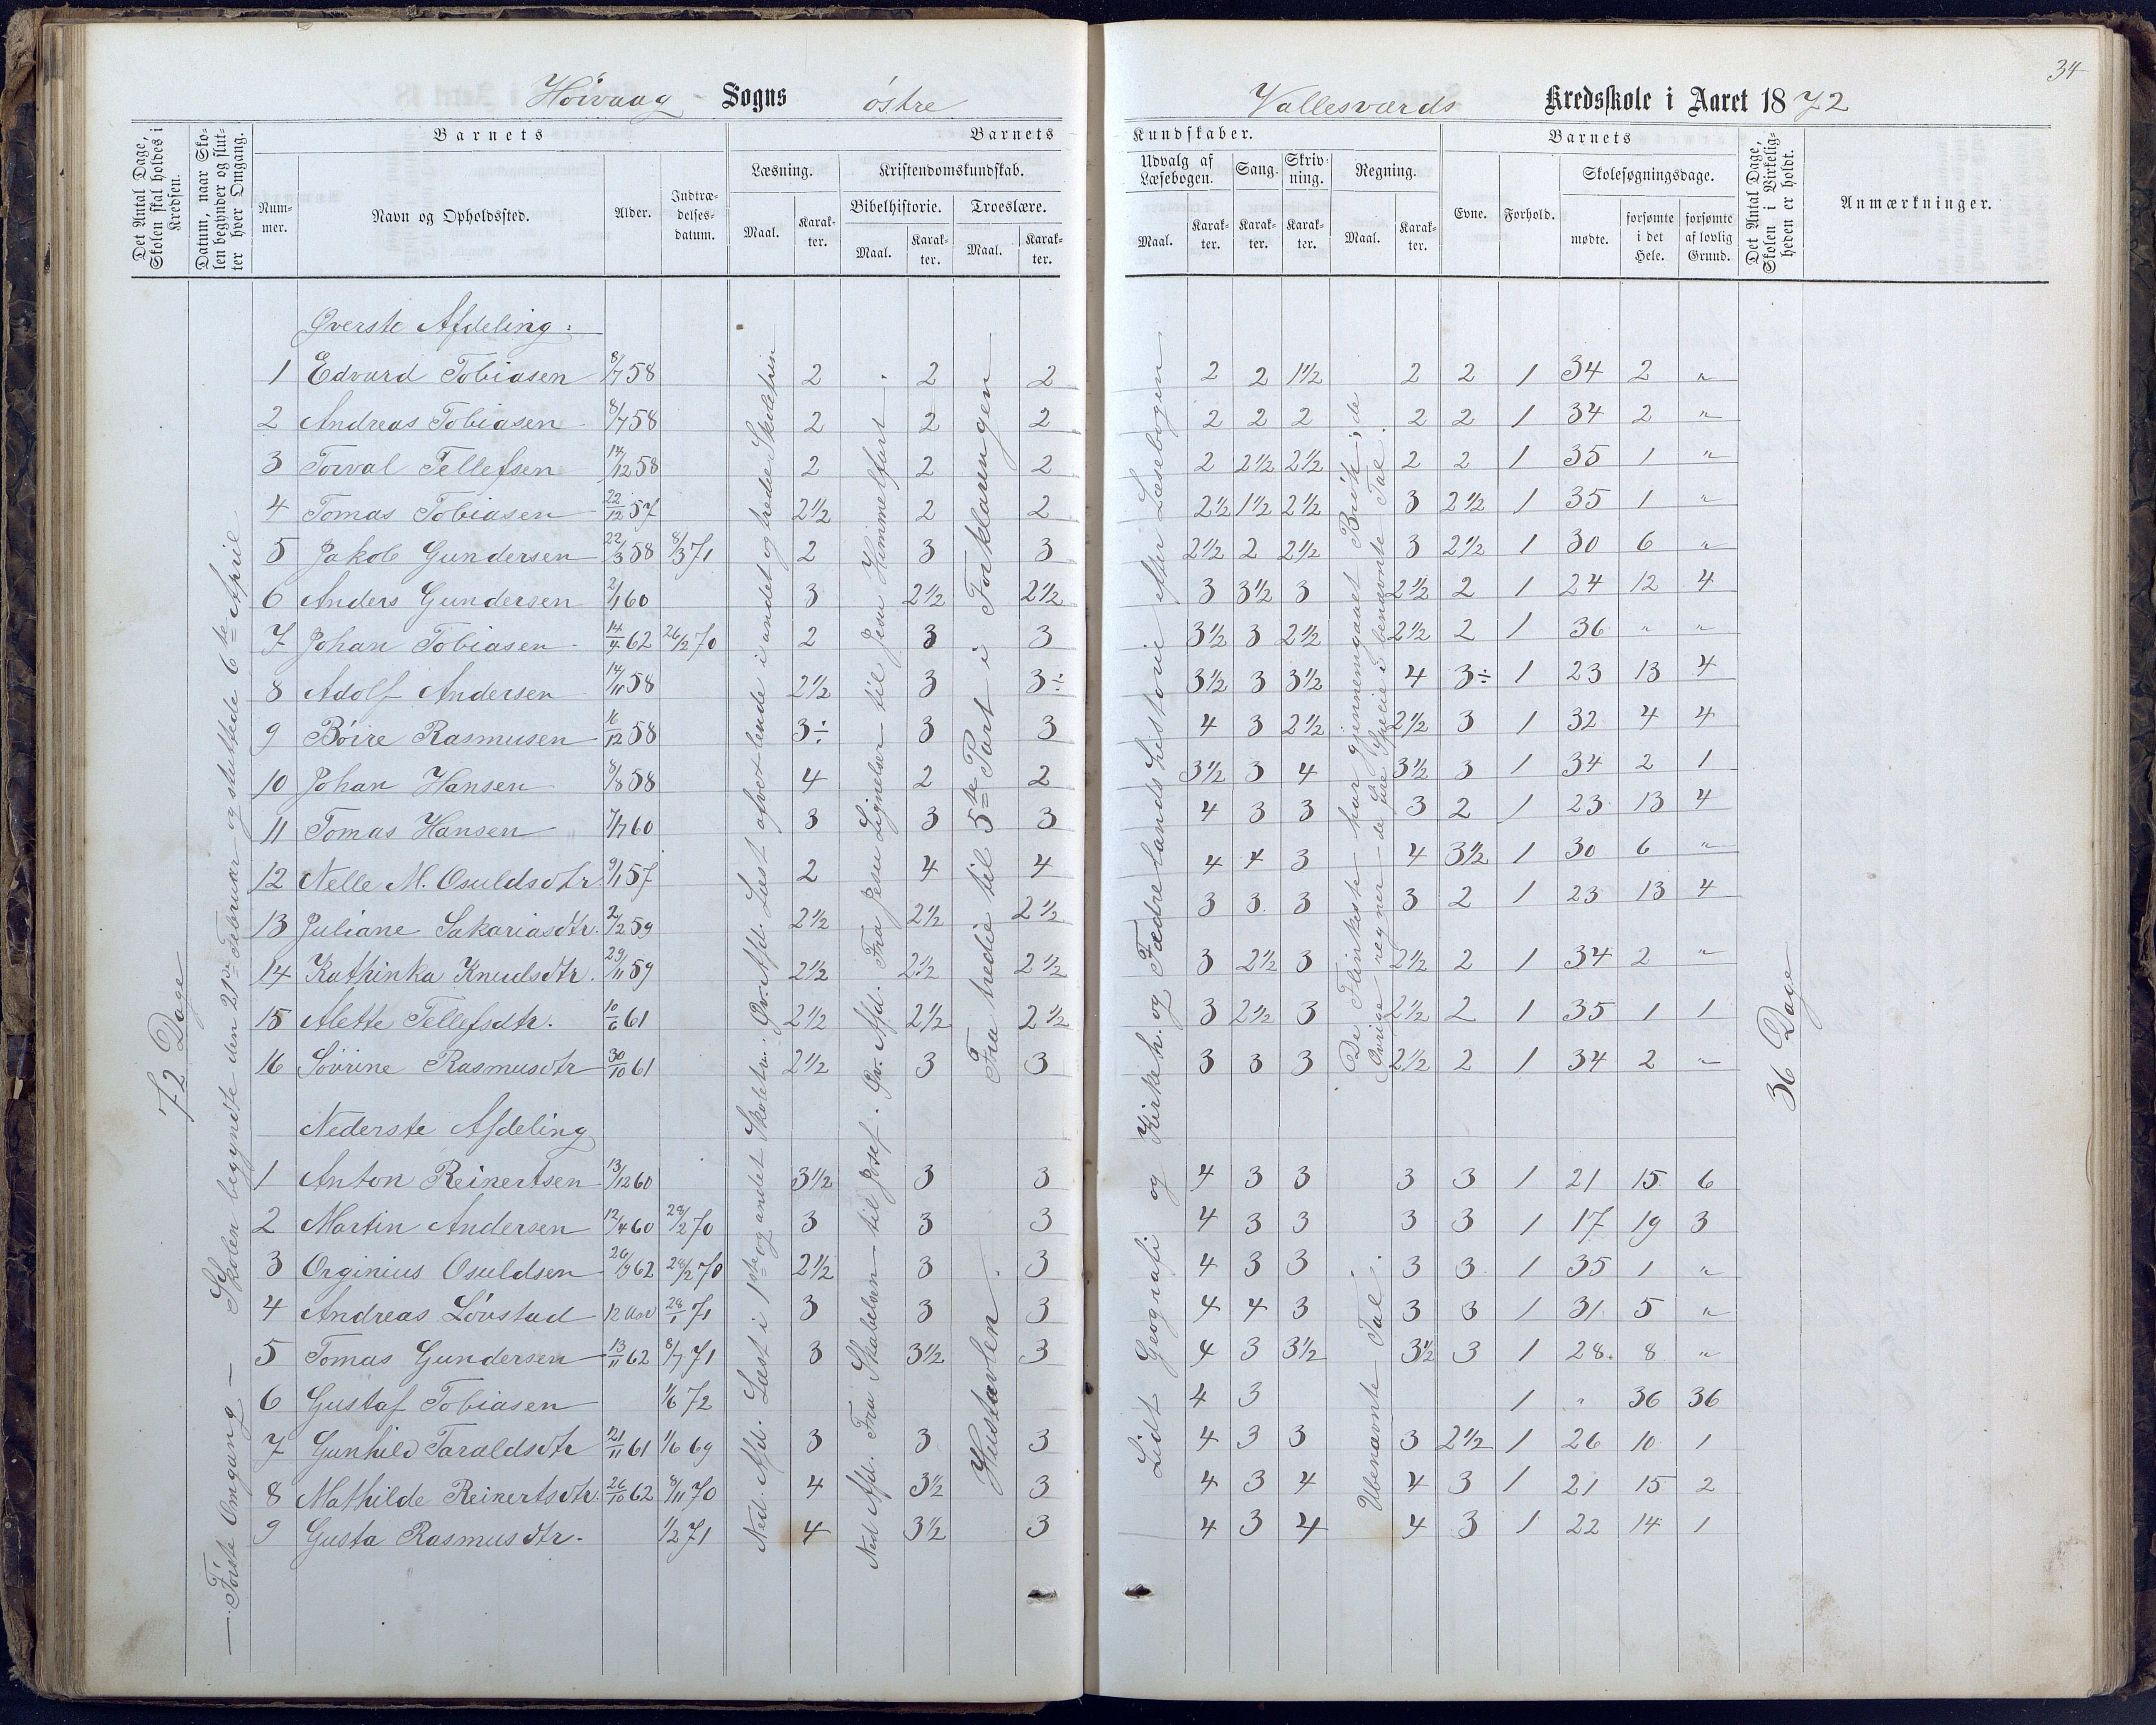 34
Høivaag Sogns østre Vallesværds Kredsskole i Aaret 1872
Det Antal Dage, Skolen skal holdes i Kredsen.
Datum, naar Skolen begynder og slutter hver Omgang.
Barnets
Nummer.
Navn og Opholdssted.
Alder.
Indtrædelsesdatum.
Barnets Kundskaber.
Læsning.
Maal.
Karakter.
Kristendomskundskab.
Bibelhistorie.
Maal.
Karakter.
Troeslære.
Maal.
Karakter.
Udvalg af Læsebogen.
Maal.
Karakter.
Sang.
Karakter.
Skrivning.
Karakter.
Regning.
Maal.
Karakter.
Barnets
Evne.
Forhold.
Skolesøgningsdage.
mødte.
forsømte i det Hele.
forsømte af lovlig Grund.
Det Antal Dage, Skolen i Virkeligheden er holdt.
Anmærkninger.
72 Dage
— Første Omgang — Skolen begyndte den 21de Februar og sluttede 6te April
Øverste Afdeling:
1 Edvard Tobiasen 8/7 58 2 2 2 2 2 1½ 2 2 1 34 2 "
2 Andreas Tobiasen 8/7 58 2 2 2 2 2 2 2 2 1 34 2 "
3 Torval Tellefsen 14/12 58 2 2 2 2 2½ 2½ 2 2 1 35 1 "
4 Tomas Tobiasen 22/12 57 2½ 2 2 2½ 1½ 2½ 3 2½ 1 35 1 "
5 Jakob Gundersen 22/3 58 8/3 71 2 3 3 2½ 2 2½ 3 2½ 1 30 6 "
6 Anders Gundersen 2/1 60 3 2½ 2½ 3 3½ 3 2½ 2 1 24 12 4
7 Johan Tobiasen 14/4 62 26/2 70 2 3 3 3½ 3 2½ 2½ 2 1 36 " "
8 Adolf Andersen 14/11 58 2½ 3 3÷ 3½ 3 3½ 4 3÷ 1 23 13 4
9 Böire Rasmusen 16/12 58 3÷ 3 3 4 3 2½ 2½ 3 1 32 4 4
10 Johan Hansen 8/8 58 4 2 2 3½ 3 4 3½ 3 1 34 2 1
11 Tomas Hansen 7/7 60 3 3 3 4 3 3 3 2 1 23 13 4
12 Nelle M. Osuldsdtr. 9/1 57 2 4 4 4 4 3 4 3½ 1 30 6 "
13 Juliane Sakariasdtr. 2/2 59 2½ 2½ 2½ 3 3 3 3 2 1 23 13 4
14 Kathinka Knudsdtr. 29/11 59 2½ 2½ 2½ 3 2½ 3 2½ 2 1 34 2 "
15 Alette Tellefsdtr. 10/6 61 2½ 2½ 2½ 3 2½ 3 2½ 2 1 35 1 1
16 Sövrine Rasmusdtr 30/10 61 2½ 3 3 3 3 3 2½ 2 1 34 2 "
Nederste Afdeling
1 Anton Reinertsen 13/12 60 3½ 3 3 4 3 3 3 3 1 21 15 6
2 Martin Andersen 12/4 60 28/2 70 3 3 3 4 3 3 3 3 1 17 19 3
3 Orginius Osuldsen 26/9 62 28/2 70 2½ 3 3 4 3 3 3 3 1 35 1 "
4 Andreas Lövstad 12 Aar 28/1 71 3 3 3 4 4 3 3 3 1 31 5 "
5 Tomas Gundersen 13/11 62 8/7 71 3 3½ 3 4 3 3½ 3½ 3 1 28 8 "
6 Gustaf Tobiasen 1/6 72 4 3 1 " 36 36
7 Gunhild Taraldsdtr 21/11 61 1/6 69 3 3 3 4 3 3 3 2½ 1 26 10 1
8 Mathilde Reinertsdtr. 26/10 62 8/11 70 4 3½ 3 4 3 4 4 3 1 21 15 2
9 Gusta Rasmusdtr. 1/2 71 4 3½ 3 4 3 4 4 3 1 22 14 1
Ned. Afd. Læst i 1ste og andet Skoletrin. Øv. Afd. Læst afvexlende i andet og tredie Skoletrin
Ned Afd. Fra Skabelsen til Josef. Øv. Afd. Fra Jesu Lignelser til Jesu Himmelfart.
Hustavlen. Fra tredie til 5te Part i Forklaringen
Lidt Geografi og Kirkeh. og Fædrelandshistorie efter Læsebogen
De Flinkeste har gjennemgaaet Brøk; de Øvrige regner de fire Specie i benævnte Tal.
Ubenævnte Tal.
36 Dage